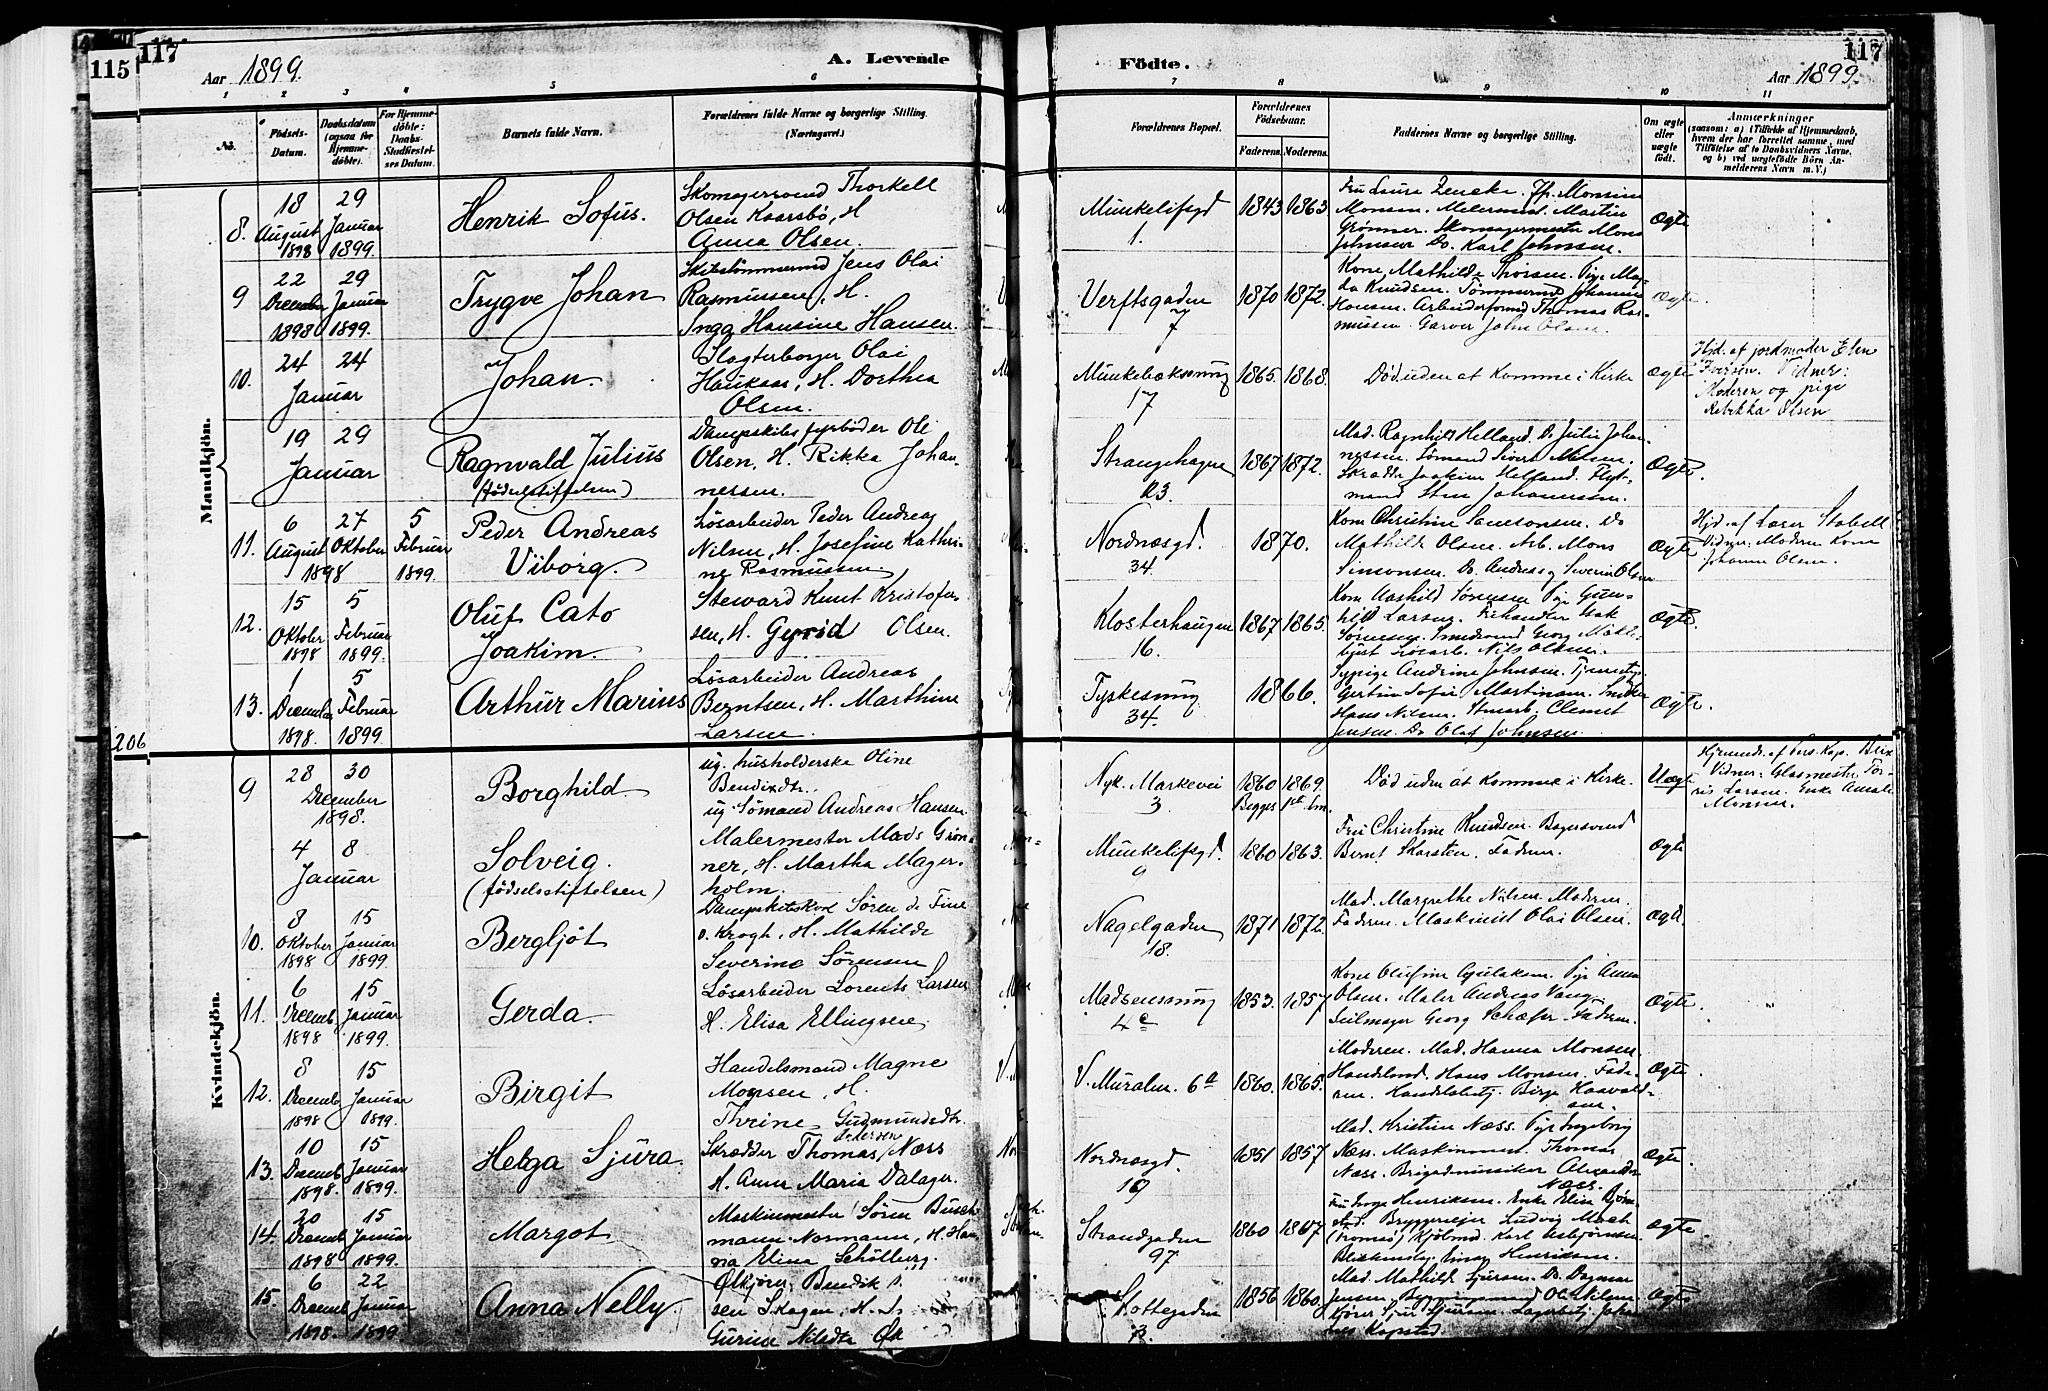 115 117
Aar 1899.
A. Levende
Födte.
117
Aar 1899.
1 2 3 4 5 6 7 8 9 10 11
No.
Födsels-
Datum.
Daabsdatum
(ogsaa for
Hjemme-
döbte).
For Hjemme-
döbte:
Daabs
Stadfæstel-
ses Datum.
Barnets fulde Navn.
Forældrenes fulde Navne og borgerlige Stilling.
(Næringsvei.)
Forældrenes Bopæl.
Forældrenes
Födselsaar.
Faderens. Moderens.
Faddernes Navne og borgerlige Stilling.
Om ægte
eller
uægte
födt.
Anmærkninger
(saasom: a) i Tilfælde af Hjemmedaab,
hvem der har forrettet samme, med
Tilföielse af to Daabsvidners Navne,
og b) ved uægtefödte Börn An-
melderens Navn m. V.)
Mandkjön.
8.
18
August
1898
29
Januar
1899.
Henrik Sofus.
Skomagersvend Thorkell
Olsen Kaarsbø, H
Anna Olsen.
Munkelifsgd
1.
1843 1863
Fru Laura Zencke. Jfr. Monsine
Monsen. Malermest. Martin
Grønner. Skomagermester Mons
Johnsen Do. Karl Johnsen.
Ægte
9
22
December
1898
29
Januar
1899.
Trygve Johan
Skibstømmermd Jens Olai
Rasmussen, H.
Inga Hansine Hansen.
Verftsgaden
7
1870 1872.
Kone Mathilde Thorsen. Pige Mag-
da Knudsen. Tømmermd Johannes
Hansen. Arbeiderformd Thomas Ras-
mussen. Garver John Olsen.
Ægte.
10.
24
24
Januar
Johan.
Slagterborger Olai
Haukaas, H. Dorthea
Olsen.
Munkebæksmug
17
1865. 1868.
Död uden at komme i Kirke
Ægte
Hjd. af jordmoder Elen
Iversen. Vidner:
Moderen og pige
Rebekka Olsen
19
29
Januar
Ragnvald Julius
(födselsstiftelsen)
Dampskibs fyrbøder Ole
Olsen, H. Rikka Johan-
nessen.
Strangehagen
23.
1867 1872.
Mad. Ragnhild Helland. Do Julie Johan-
nessen. Sömand Sivert Nilsen.
Skradder Joakim Helland. Flyt-
mand Sten Johannessen.
Ægte.
11.
6
August
1898
27
Oktober
5
Februar
1899.
Peder Andreas
Viborg.
Løsarbeider Peder Andreas
Nilsen, H. Josefine Kathri-
ne Rasmussen
Nordnæsgd.
34.
1870.
Kone Christine Samsonsen. Do
Mathilde Olsen. Arb. Mons
Simonsen. Do Andreas og Severin Olsen
Ægte
Hjd. af Lærer Stabell
Vidner: Moderen Kone
Johanne Olsen.
12.
15
Oktober
1898
5
Februar
1899.
Oluf Cato
Joakim.
Steward Knut Kristofer-
sen, H. Gyrid Olsen.
Klosterhaugen
16.
1867 1865.
Kone Aashild Sørensen Pige Gun-
hild Larsen. Fehandler Isak
Sørensen. Smedsvend Georg Møkle-
bust Løsarb. Nils Olsen.
Ægte.
13.
1
December
1898.
5
Februar
1899.
Arthur Marius
Løsarbeider Andreas
Berntsen, H. Marthine
Larsen.
Tyskesmug
34.
1866.
Sypige Andrine Johnsen. Tjenestpg.
Gertine Sofie Martinsen. Snekker
Hans Nilsen. Stuearb. Clemet
Jensen. Do Olaf Johnsen.
Ægte.
206
Kvindekjön.
9
28
30
December
1898.
Borghild.
ug. husholderske Oline
Bendixdtr.
ug Sømand Andreas Hansen.
Nyk. Markevei
3
1860 1869.
Begges 1ste Sm.
Död uden at komme i Kirke.
Uægte
Hjemmed. af Pers. Kap. Brix
Vidner: Glasmester Tör-
ris Larsen. Enke Amalie
Monsen.
4
8
Januar
Solveig.
(födselsstiftelsen)
Malermester Mads Grøn-
ner, H. Martha Mager-
holm.
Munkelifsgd.
9
1860 1863.
Fru Christine Knudsen. Bagersvend
Bernt Skarsten. Faderen.
Ægte
10.
8
Oktober
1898
15
Januar
1899.
Bergljót
Dampskibskok Søren de Fine
v. Krogh, H. Mathilde
Severine Sørensen
Nagelgaden
18.
1871 1872.
Mad. Margrethe Nilsen. Moderen.
Faderen. Maskinist Olai Olsen.
Ægte.
11.
6
Decemb
1898
15
Januar
1899.
Gerda.
Løsarbeider Lorents Larsen
H. Elisa Ellingsen.
Madsensmug
4c
1853. 1857
Kone Olufine Ayulaksen. Pige Anna
Olsen. Maler Andreas Vang
Seilmager Georg Schæfer. Faderen.
Ægte.
12.
8
Decemb
1898
15
Januar
1899.
Birgit
Handelsmand Magne
Monsen, H.
Thrine Gudmundsdtr.
V. Muralm. 6a
1860. 1865.
Moderen. Mad. Hanna Monsen.
Handelsmd. Hans Monsen. Fade-
ren. Handelsbetj. Birge Haavald-
sen.
Ægte.
13.
10
Decemb
1898.
15
Januar
1899.
Helga Sjura.
Skrædder Thomas Pedersen Næss
H. Anne Maria Dalager.
Nordnæsgd.
19
1851 1857
Mad. Kristine Næss. Pige Ingeborg
Næss. Maskinmest. Thomas
Næss. Brigademusiker Alexander
Næss.
Ægte.
14.
20
Decemb
1898
15
Januar
1899.
Margot
Maskinmester Søren Busch-
mann Normann, H. Han-
na Elina Schölberg.
Strandgaden
97
1860 1867
Fru Inga Henriksen. Enke Elise Bjørn-
stad. Bryggerieier Ludvig Mack
(Tromsø) Kjølmd. Karl Asbjørnsen
Blikkenslag. Einar Henriksen.
Ægte.
15.
6
Decemb
1898.
22
Januar
1899
Anna Nelly.
Ølkjører Bendik
sen Skagen, H.
Gurine Nilsdtr
Skottegaden
3.
1856 1860.
Mad. Mathilde Sjursen. Do. Dagmar
Jensen. Bygningssmed Ole Nilsen
Kjører Sjur Sjursen. Lagerbetj. Johan-
nes Kopstad.
Ægte.